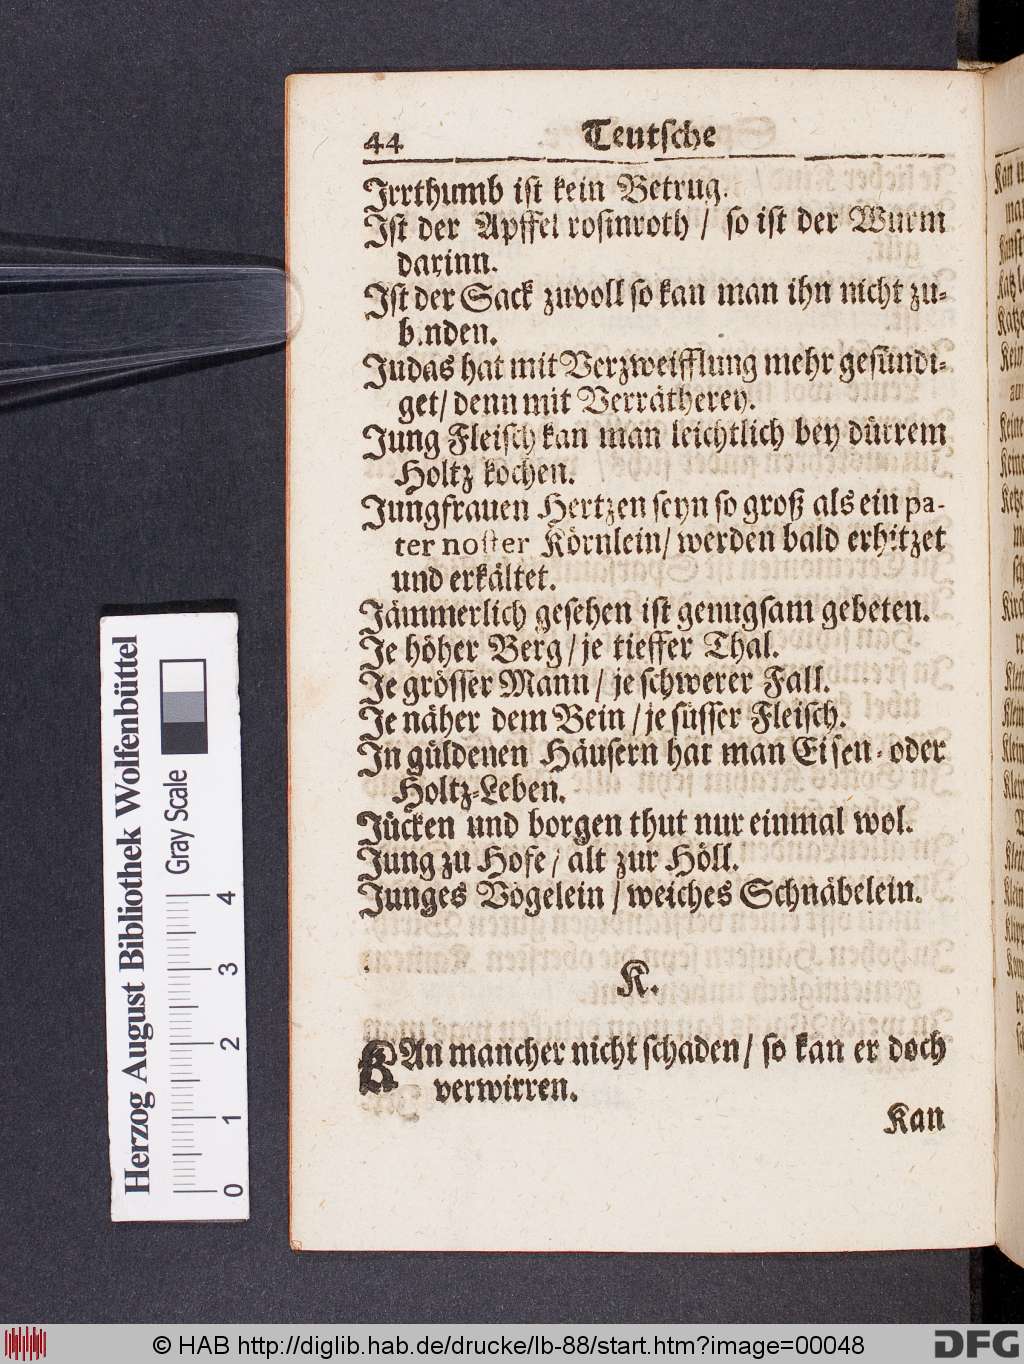 44 Teutsche
Irrthumb ist kein Betrug.
Ist der Apffel rosinroth / so ist der Wurm
darinn.
Ist der Sack zuvoll so kan man ihn nicht zu-
b.nden.
Judas hat mit Verzweifflung mehr gesündi-
get / denn mit Verrätherey.
Jung Fleisch kan man leichtlich bey dürrem
Holtz kochen.
Jungfrauen Hertzen seyn so groß als ein pa-
ter noster Körnlein / werden bald erhitzet
und erkältet.
Jämmerlich gesehen ist genugsam gebeten.
Je höher Berg / je tieffer Thal.
Je grösser Mann / je schwerer Fall.
Je näher dem Bein / je süsser Fleisch.
In güldenen Häusern hat man Eisen- oder
Holtz-Leben.
Jücken und borgen thut nur einmal wol.
Jung zu Hofe / alt zur Höll.
Junges Vögelein / weiches Schnäbelein.
K.
KAn mancher nicht schaden / so kan er doch
verwirren.
Kan
Herzog August Bibliothek Wolfenbüttel
Gray Scale
0 1 2 3 4
© HAB http://diglib.hab.de/drucke/lb-88/start.htm?image=00048
DFG